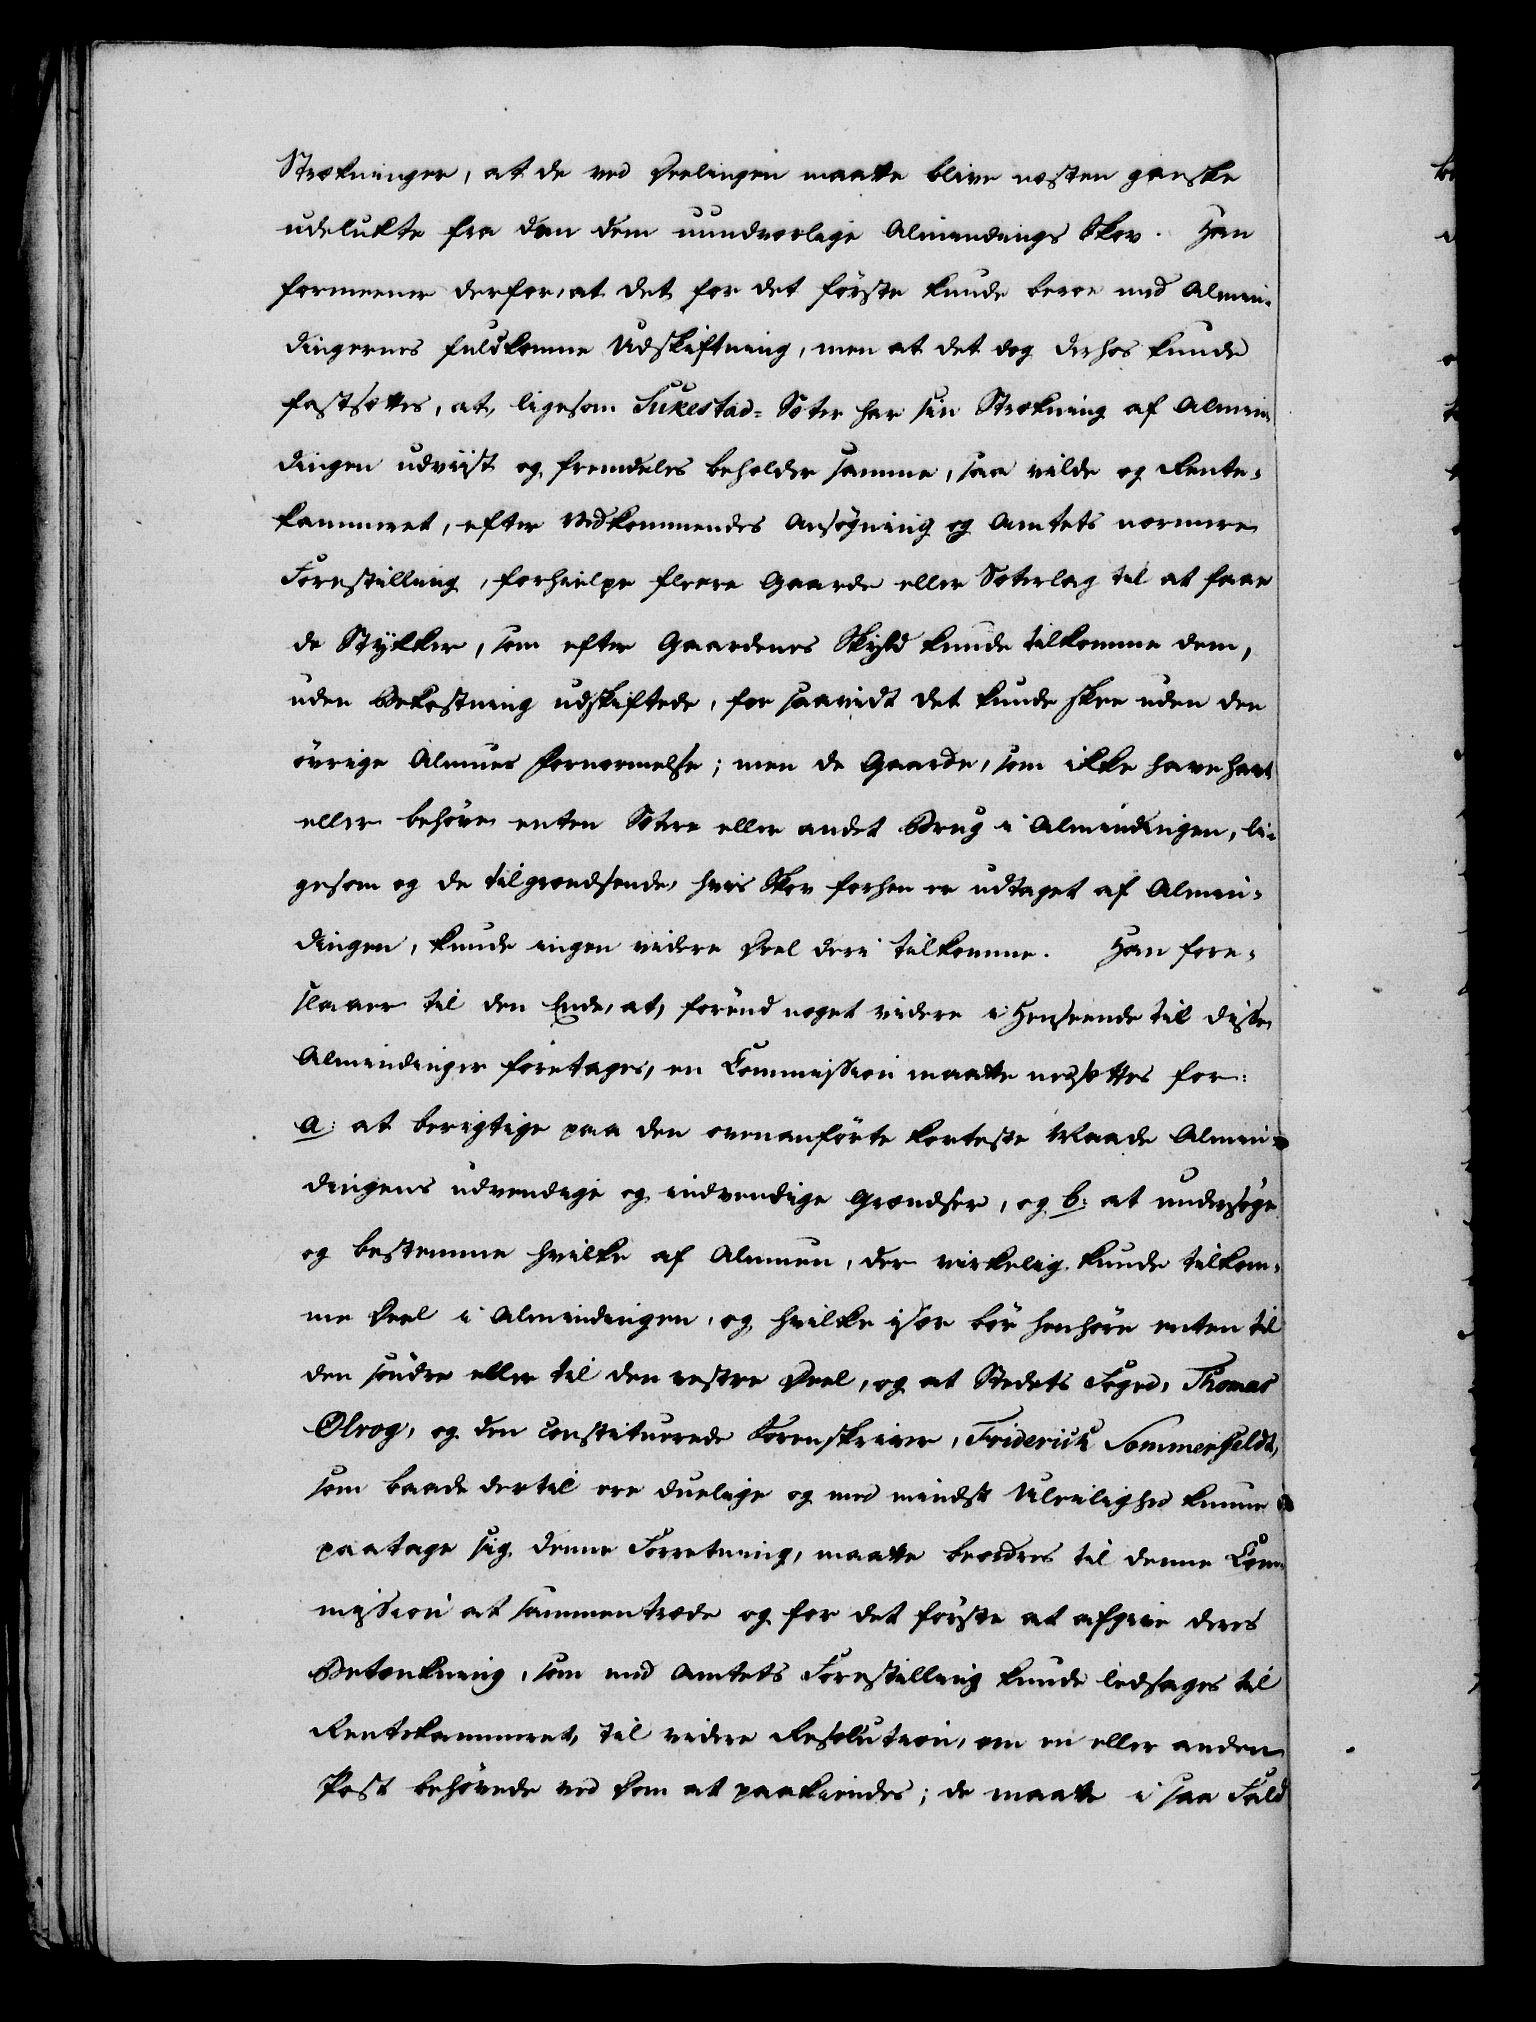 Strækninger, at de ved Deelingen maatte blive næsten ganske
udelukte fra den dem uundværlige Almindings Skov. Han
formeener derfor, at det for det förste kunde beroe med Almin-
dingernes fuldkomne Udskiftning, men at det dog derhos kunde
fastsættes, at, ligesom Sukestad-Sæter har sin Strækning af Almin-
dingen udviist og fremdeles beholder samme, saa vilde og Rente-
kammeret, efter Vedkommendes Ansögning og Amtets nærmere
Forestilling, forhielpe fleere Gaarde eller Sæterlag til at faae
de Stykker, som efter Gaardenes Skyld kunde tilkomme dem,
uden Bekostning udskiftede, for saavidt det kunde skee uden den
övrige Almues Fornærmelse; men de Gaarde, som ikke have havt
eller behöve enten Sætre eller andet Brug i Almindingen, li-
gesom og de tilgrændsende, hvis Skov forhen er udtaget af Almin-
dingen, kunde ingen videre Deel deri tilkomme. Han fore-
slaaer til den Ende, at, forend noget videre i Henseende til disse
Almindinger foretages, en Commission maatte nedsættes for:
a: at berigtige paa den ovenanförte korteste Maade Almin-
dingens udvendige og indvendige Grændser, og b: at undersöge
og bestemme hvilke af Almuen, der virkelig kunde tilkom-
me Deel i Almindingen, og hvilke især bör henhöre enten til
den söndre eller til den vestre Deel, og at Stedets Foged, Thomas
Olrog, og den constituerede Sorenskriver, Friderich Sommerfeldt,
som baade dertil ere duelige og med mindst Uleilighed kunne
paatage sig denne Forretning, maatte beordres til denne Com-
mission at sammentræde og for det förste at afgive deres
Betænkning, som med Amtets Forestilling kunde ledsages til
Rentekammeret, til videre Resolution, om en eller anden
Post behövede ved Dom at paakiendes; de maatte i saa Fald